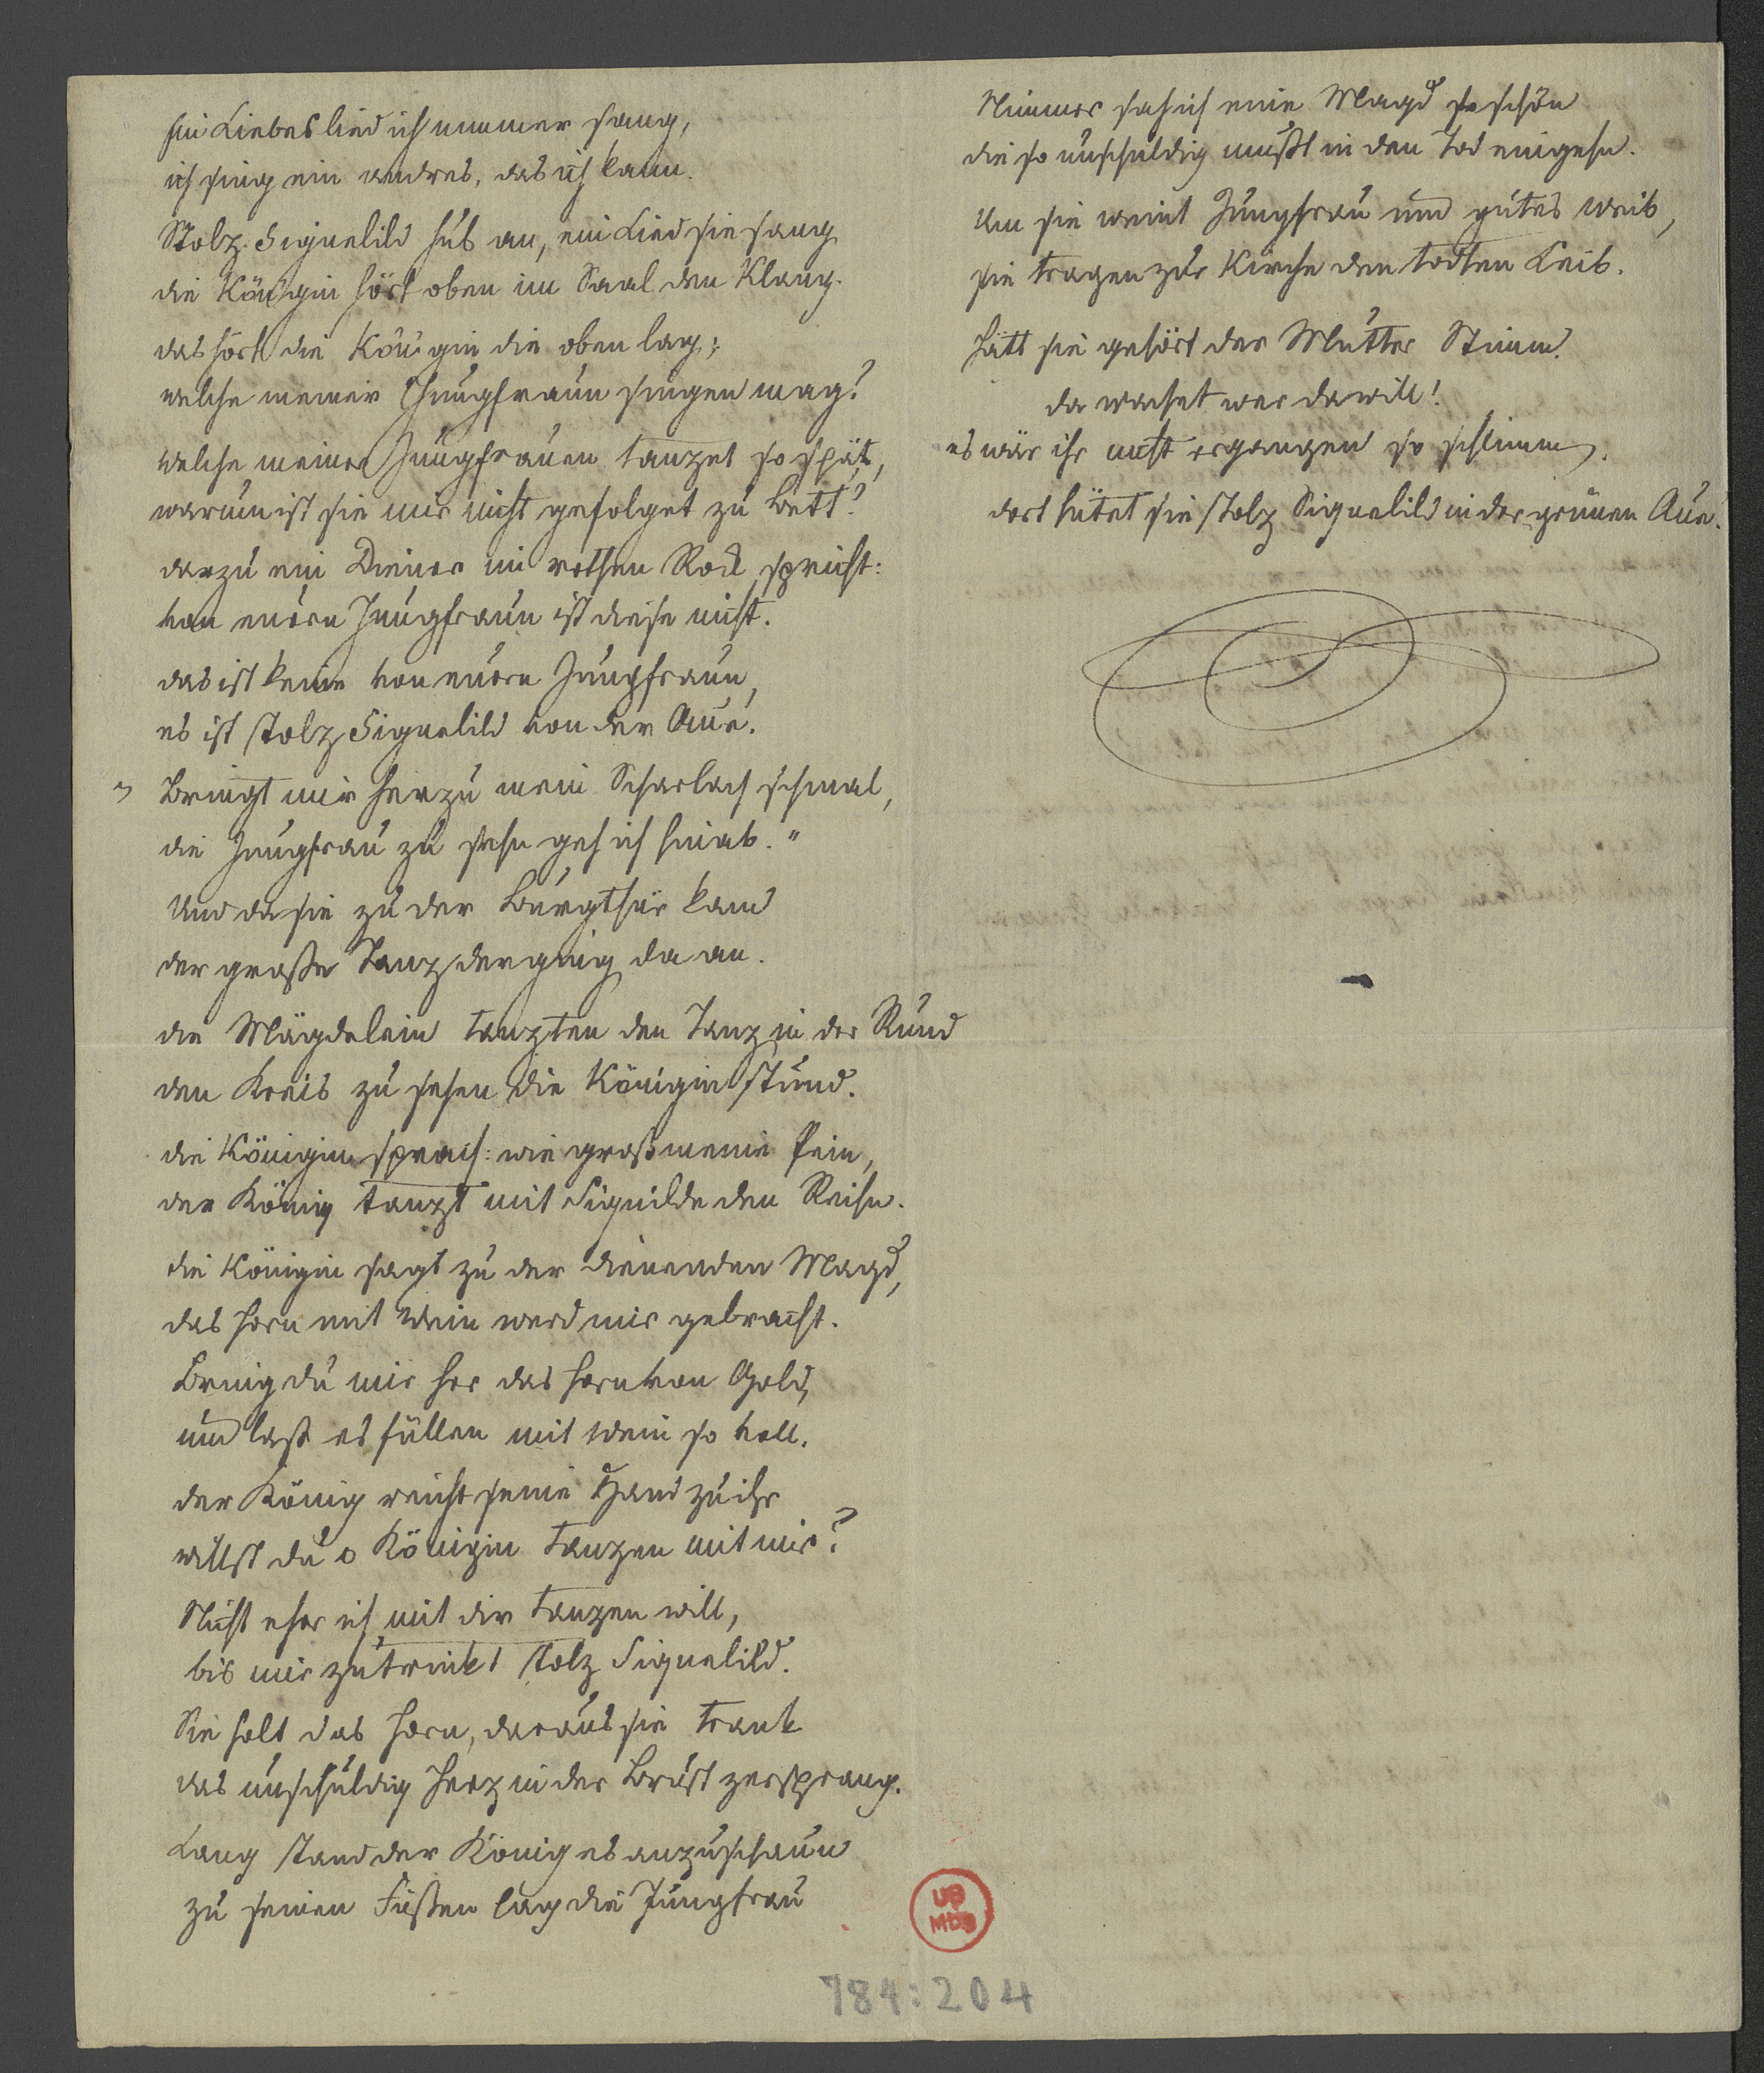 ein Liebeslied ich nimmer sang,
ich sing ein andres, das ich kann.
Stolz Signelild hub an, ein Lied sie sang
die Königin hört oben im Saal den Klang.
das hört die Königin die oben lag;
welche meiner Jungfraun singen mag?
welche meiner Jungfrauen tanzet so spät,
warum ist sie mir nicht gefolget zu Bett?
darzu ein Diener im rothen Rock spricht:
von euern Jungfraun ist diese nicht.
das ist keine von euern Jungfraun,
es ist stolz Signelild von der Aue.
" Bringt mir herzu mein Scharlach schmal,
die Jungfrau zu sehn geh ich hinab."
Und da sie zu der Burgthür kam
der große Tanz der ging da an.
die Mägdelein tanzten den Tanz in der Rund
den Kreis zu sehen die Königin stund.
die Königin sprach: wie groß meine Pein,
der König tanzt mit Signilde den Reihn.
die Königin sagt zu der dienenden Magd,
das Horn mit Wein werd mir gebracht.
Bring du mir her das Horn von Gold,
und laß es füllen mit Wein so voll.
der König reicht seine Hand zu ihr
willst du o Königin tanzen mit mir?
Nicht eher ich mit dir tanzen will,
bis mir zutrinkt stolz Signelild.
Sie holt das Horn, daraus sie trank
das unschuldig Herz in der Brust zersprang.
Lang stand der König es anzuschaun
zu seinen Füßen lag die Jungfrau
Nimmer sah ich eine Magd so schön
die so unschuldig mußt in den Tod eingehn.
Um sie weint Jungfrau und gutes Weib,
sie tragen zur Kirche den todten Leib.
Hätt sie gehört der Mutter Stimm.
da wachet wer da will!
es wär ihr nicht ergangen so schlimm.
dort hütet sie stolz Signelild in der grünen Aue.
UB
Mbg
784:204